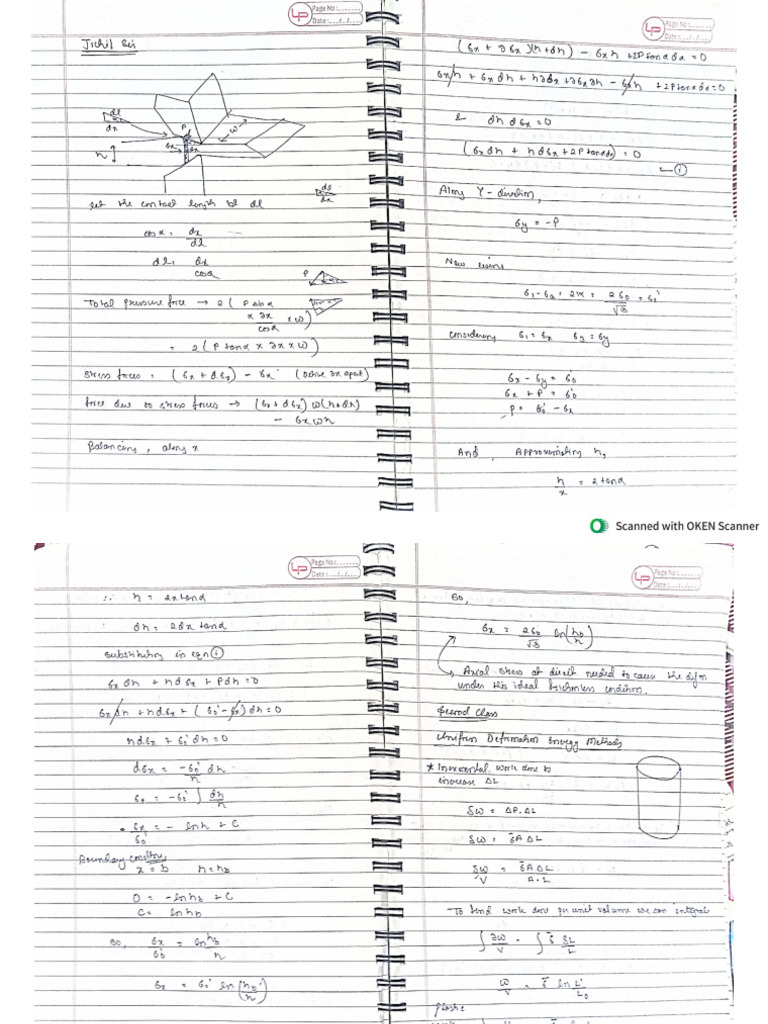 Page No:
Date:
Let the contact length be dl
cos α = dx/dl
dl = dx/cosα
Total pressure force → 2(P sinα
x dx/cosα x w)
= 2(P tanα x dx x w)
Stress forces = (σx + dσx) - σx
force due to stress forces → (σx + dσx) w(h+dh)
- σx wh
Balancing, along x
Page No:
Date:
(σx + dσx)(h+dh) - σxh + 2P tanα dx = 0
σxh + σxdh + hdσx + dσxdh - σxh + 2P tanα dx = 0
& dh dσx = 0
(σxdh + hdσx + 2P tanα dx) = 0
①
Along Y-direction,
σy = -P
σ1 - σ3 = 2K = 2σ0/√3 = σ0'
Considering σ1 = σx σ3 = σy
σx - σy = σ0'
σx + P = σ0'
P = σ0' - σx
And, Approximating h,
h/x = 2 tanα
Scanned with OKEN Scanner
Page No:
Date:
∴ h = 2x tanα
dh = 2dx tanα
substituting in eqn ①
σxdh + hdσx + Pdh = 0
σxdh + hdσx + (σ0' - σx)dh = 0
hdσx + σ0'dh = 0
dσx = -σ0' dh/h
σx = -σ0' ∫ dh/h
σx/σ0' = - ln h + C
Boundary condition
x = b h = hb
0 = -ln hb + C
C = ln hb
so, σx/σ0' = ln hb/h
σx = σ0' ln(hb/h)
Page No:
Date:
So,
σx = 2σ0/√3 ln(hb/h)
Axial stress at die exit needed to cause the defn
under this ideal frictionless condition.
Second Class
Uniform Deformation Energy Methods
* Incremental work done to
increase ΔL
δW = ΔP.ΔL
δW = σ̄ A ΔL
δW/V = σ̄AΔL/A.L
To find work done per unit volume we can integrate
∫ δW/V = ∫ σ̄ δL/L
W/V = σ̄ ln L/L0